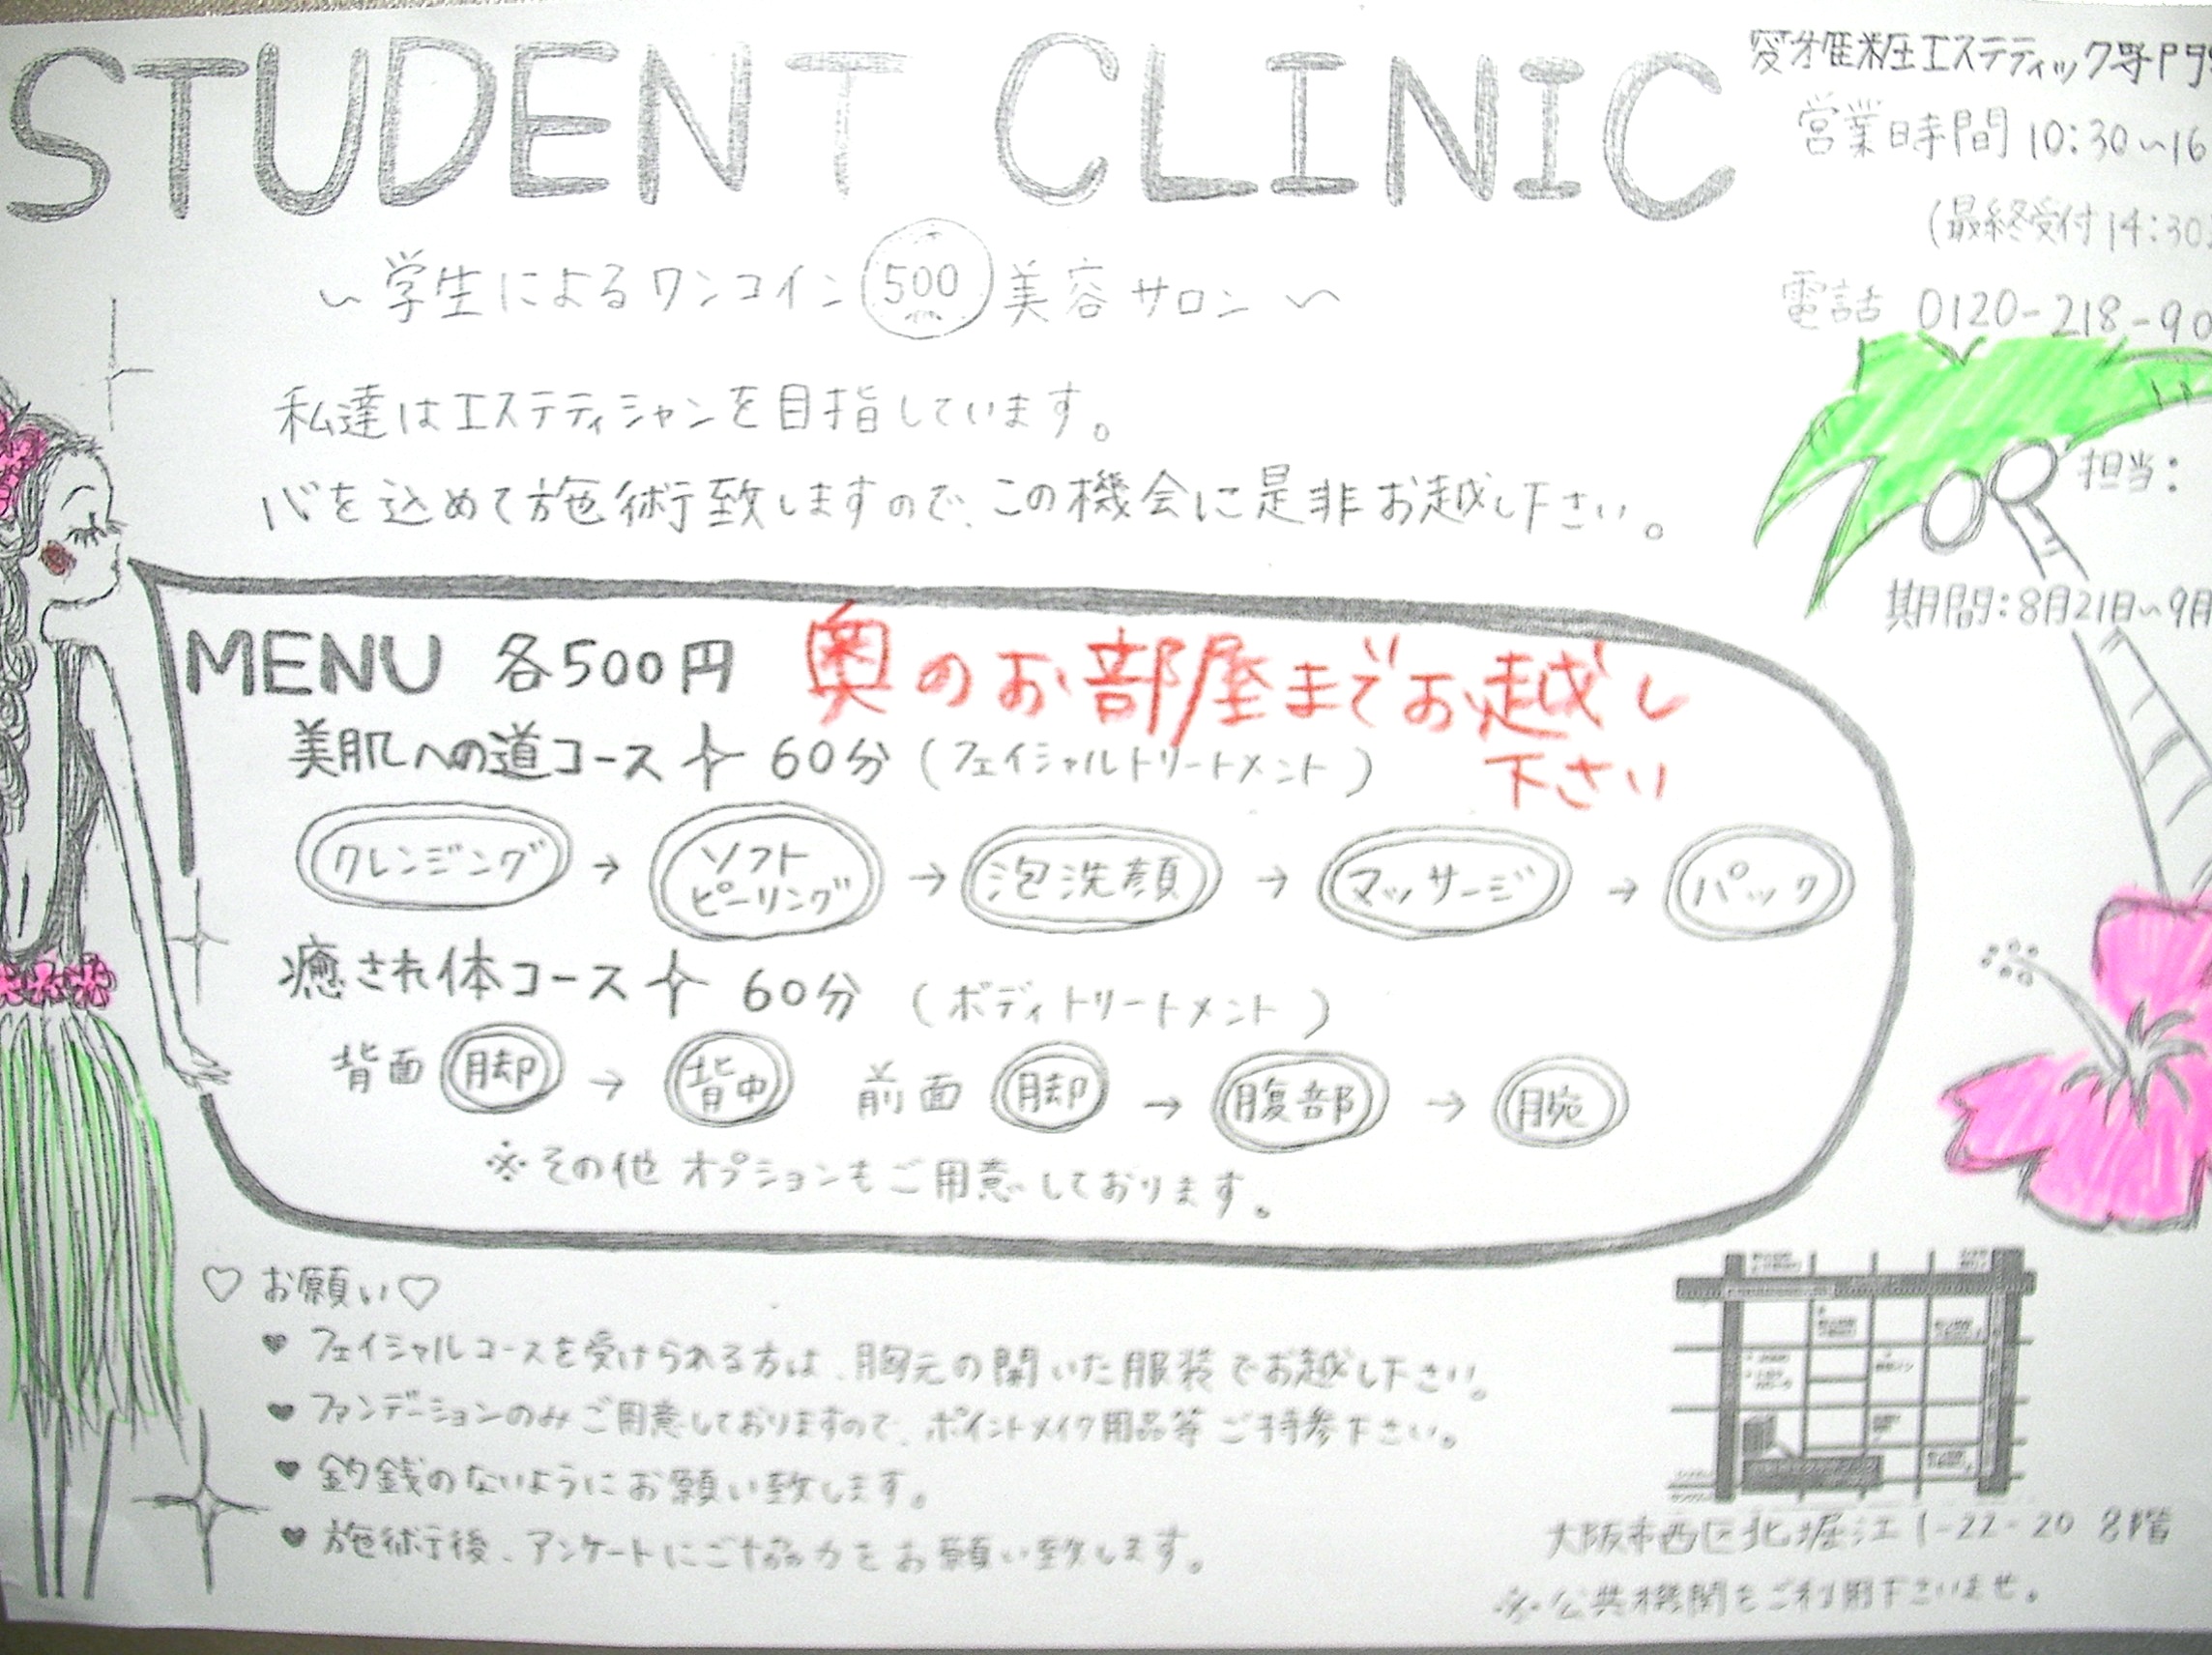 STUDENT CLINIC
エステティック専門
営業時間 10:30~16
(最終受付14:30
電話 0120-218-90
~学生によるワンコイン500美容サロン~
私達はエステティシャンを目指しています。
心を込めて施術致しますので、この機会に是非お越し下さい。
担当:
期間:8月21日~9月
MENU 各500円
奥のお部屋までお越し
下さい
美肌への道コース 60分 (フェイシャルトリートメント)
クレンジング → ソフトピーリング → 泡洗顔 → マッサージ → パック
癒され体コース 60分 (ボディトリートメント)
背面 脚 → 背中 前面 脚 → 腹部 → 腕
※その他 オプションもご用意しております。
♡お願い♡
♥ フェイシャルコースを受けられる方は、胸元の開いた服装でお越し下さい。
♥ ファンデーションのみご用意しておりますので、ポイントメイク用品等ご持参下さい。
♥ 釣銭のないようにお願い致します。
♥ 施術後、アンケートにご協力をお願い致します。
大阪市西区北堀江1-22-20 8階
※公共機関をご利用下さいませ。